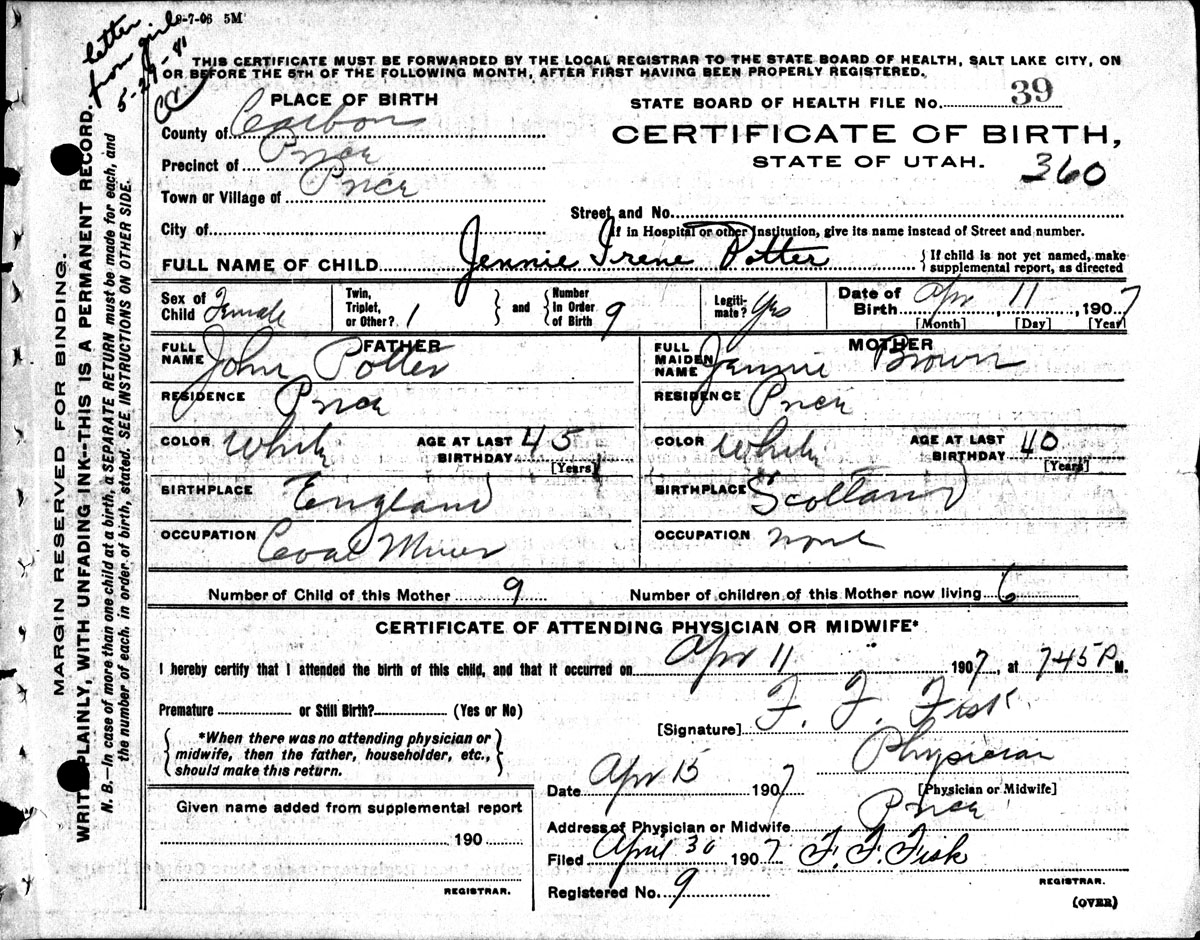 9-7-06 5M
letter
from girl
5-29-41
THIS CERTIFICATE MUST BE FORWARDED BY THE LOCAL REGISTRAR TO THE STATE BOARD OF HEALTH, SALT LAKE CITY, ON
OR BEFORE THE 5TH OF THE FOLLOWING MONTH, AFTER FIRST HAVING BEEN PROPERLY REGISTERED.
MARGIN RESERVED FOR BINDING.
WRITE PLAINLY, WITH UNFADING INK--THIS IS A PERMANENT RECORD.
N. B.—In case of more than one child at a birth, a SEPARATE RETURN must be made for each, and
the number of each, in order of birth, stated. SEE INSTRUCTIONS ON OTHER SIDE.
PLACE OF BIRTH
County of Carbon
Precinct of Price
Town or Village of Price
City of
STATE BOARD OF HEALTH FILE No. 39
CERTIFICATE OF BIRTH,
STATE OF UTAH.
360
Street and No.
If in Hospital or other Institution, give its name instead of Street and number.
FULL NAME OF CHILD Jennie Irene Potter { If child is not yet named, make
supplemental report, as directed
Sex of Child Female
Twin, Triplet, or Other? 1 } and { Number In Order of Birth 9
Legiti-mate? Yes
Date of Birth Apr 11, 1907
[Month] [Day] [Year]
FATHER
FULL NAME John Potter
RESIDENCE Price
COLOR White AGE AT LAST BIRTHDAY 45
[Years]
BIRTHPLACE England
OCCUPATION Coal Miner
MOTHER
FULL MAIDEN NAME Jennie Brown
RESIDENCE Price
COLOR White AGE AT LAST BIRTHDAY 40
[Years]
BIRTHPLACE Scotland
OCCUPATION None
Number of Child of this Mother 9 Number of children of this Mother now living 6
CERTIFICATE OF ATTENDING PHYSICIAN OR MIDWIFE*
I hereby certify that I attended the birth of this child, and that it occurred on Apr 11 1907, at 745 P M.
Premature or Still Birth? (Yes or No)
{ *When there was no attending physician or
midwife, then the father, householder, etc.,
should make this return. }
[Signature] F. F. Fisk
Physician
[Physician or Midwife]
Date Apr 15 1907
Address of Physician or Midwife Price
Given name added from supplemental report
190
REGISTRAR.
Filed April 30 1907 F. F. Fisk
Registered No. 9
REGISTRAR.
(OVER)